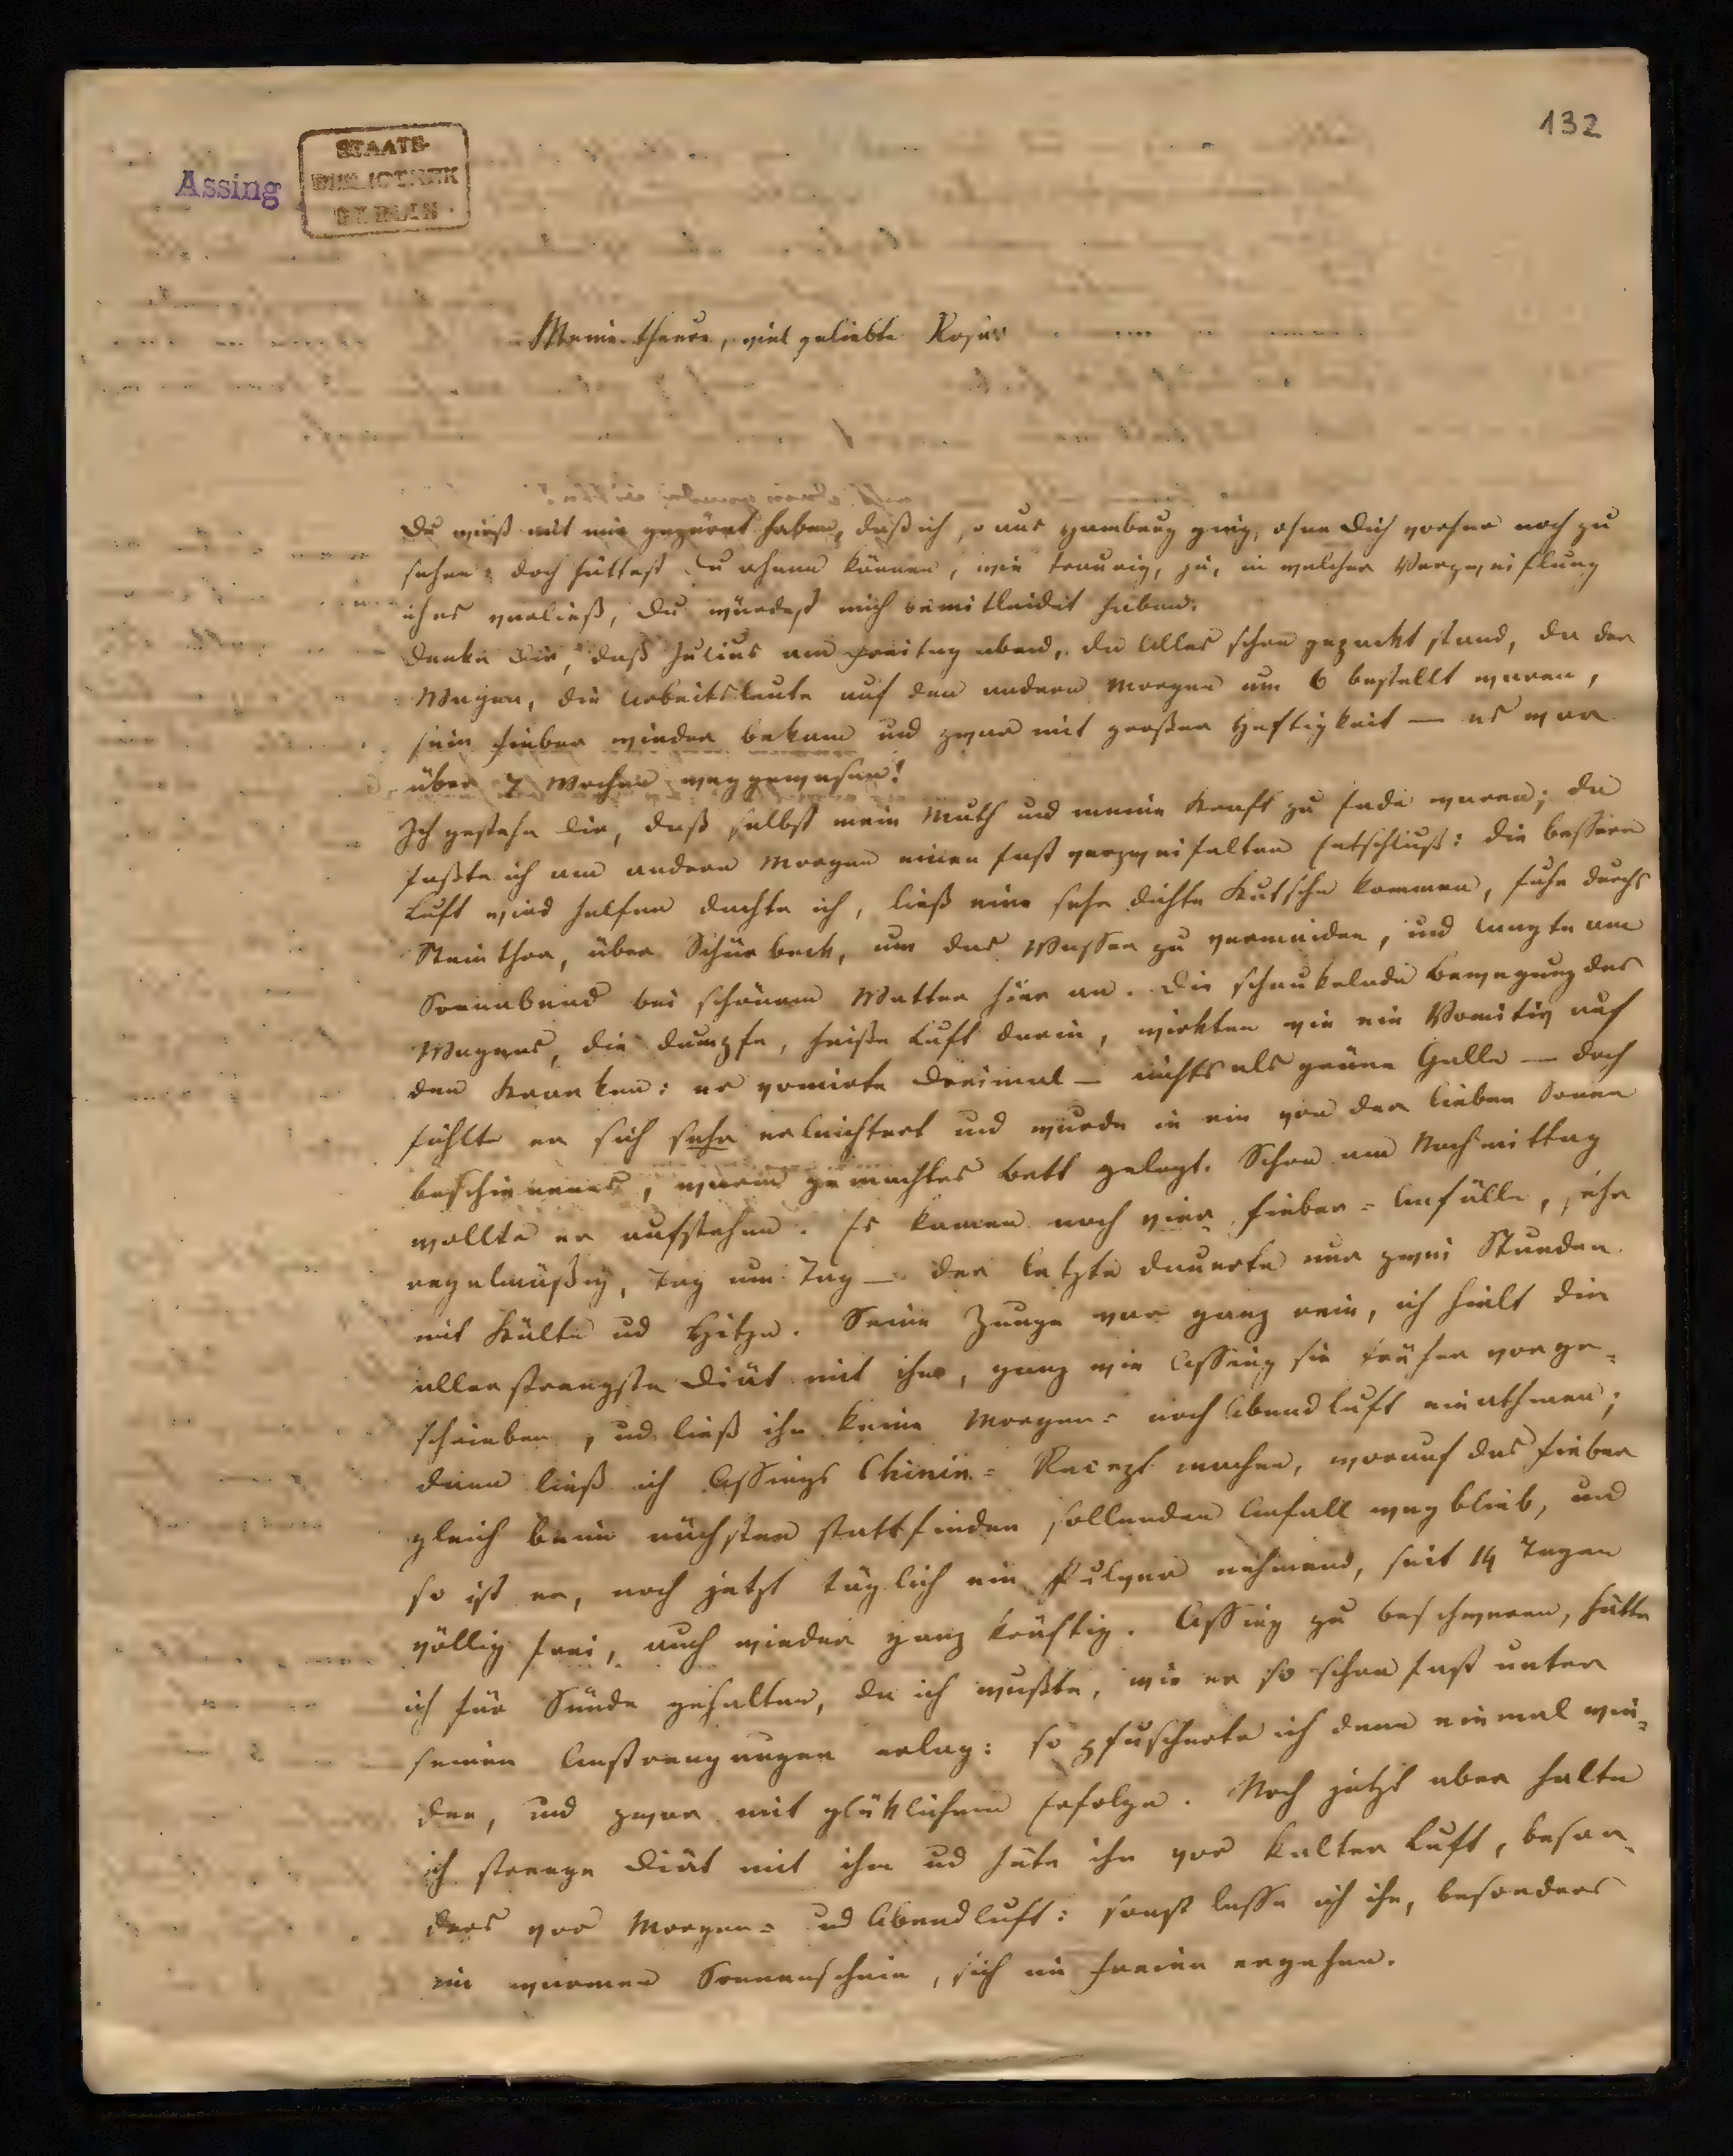 132
Assing
STAATS-
BIBLIOTHEK
BERLIN
Meine theure, viel geliebte Rosa!
Du wirst mit mir gezürnt haben, daß ich, aus Hamburg ging, ohne Dich vorher noch zu
sehen: doch hättest Du ahnen können, wie traurig, ja, in welcher Verzweiflung
ich es verließ, Du würdest mich bemitleidet haben.
Denke Dir, daß Julius am Freitag abend, da Alles schon gepackt stand, da der
Wagen, die Arbeitsleute auf den andern Morgen um 6 bestellt waren,
sein Fieber wieder bekam und zwar mit großer Heftigkeit — es war
über 7 Wochen weggewesen!
Ich gestehe Dir, daß selbst mein Muth und meine Kraft zu Ende waren; da
faßte ich am andern Morgen einen fast verzweifelten Entschluß: die bessere
Luft wird helfen dachte ich, ließ eine sehr dichte Kutsche kommen, fuhr durchs
Steinthor, über Schürbeck, um das Wasser zu vermeiden, und langte am
Sonnabend bei schönem Wetter hier an. Die schaukelnde Bewegung des
Wagens, die dumpfe, heiße Luft darin, wirkten wie ein Vomitiv auf
den Kranken: er vomirte dreimal — nichts als grüne Galle — doch
fühlte er sich sehr erleichtert und wurde in ein von der lieben Sonne
beschienenes, warm gemachtes Bett gelegt. Schon am Nachmittag
wollte er aufstehen. Es kamen noch vier Fieber-Anfälle, sehr
regelmäßig, Tag um Tag — der letzte dauerte nur zwei Stunden
mit Kälte und Hitze. Seine Zunge war ganz rein, ich hielt die
allerstrengste Diät mit ihm, ganz wie Assing sie früher vorge-
schrieben, und ließ ihn keine Morgen- noch Abendluft einathmen;
dann ließ ich Assings Chinin-Recept machen, worauf das Fieber
gleich beim nächsten stattfinden sollenden Anfall weg blieb, und
so ist er, noch jetzt täglich ein Pulver nehmend, seit 14 Tagen
völlig frei, auch wieder ganz kräftig. Assing zu beschweren, hätte
ich für Sünde gehalten, da ich wußte, wie er so schon fast unter
seinen Anstrengungen erlag: so pfuscherte ich denn einmal wie-
der, und zwar mit glücklichem Erfolge. Noch jetzt aber halte
ich strenge Diät mit ihm und hüte ihn vor kalter Luft, beson-
ders vor Morgen- und Abendluft: sonst lasse ich ihn, besonders
im warmen Sonnenschein, sich im Freien ergehen.